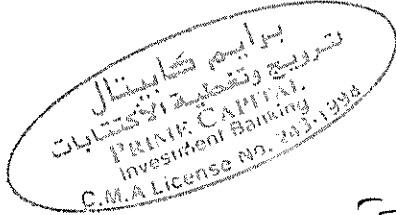 برايم كابيتال
ترويج وتغطية الاكتتابات
PRIME CAPITAL
Investment Banking
C.M.A License No. 243-1998